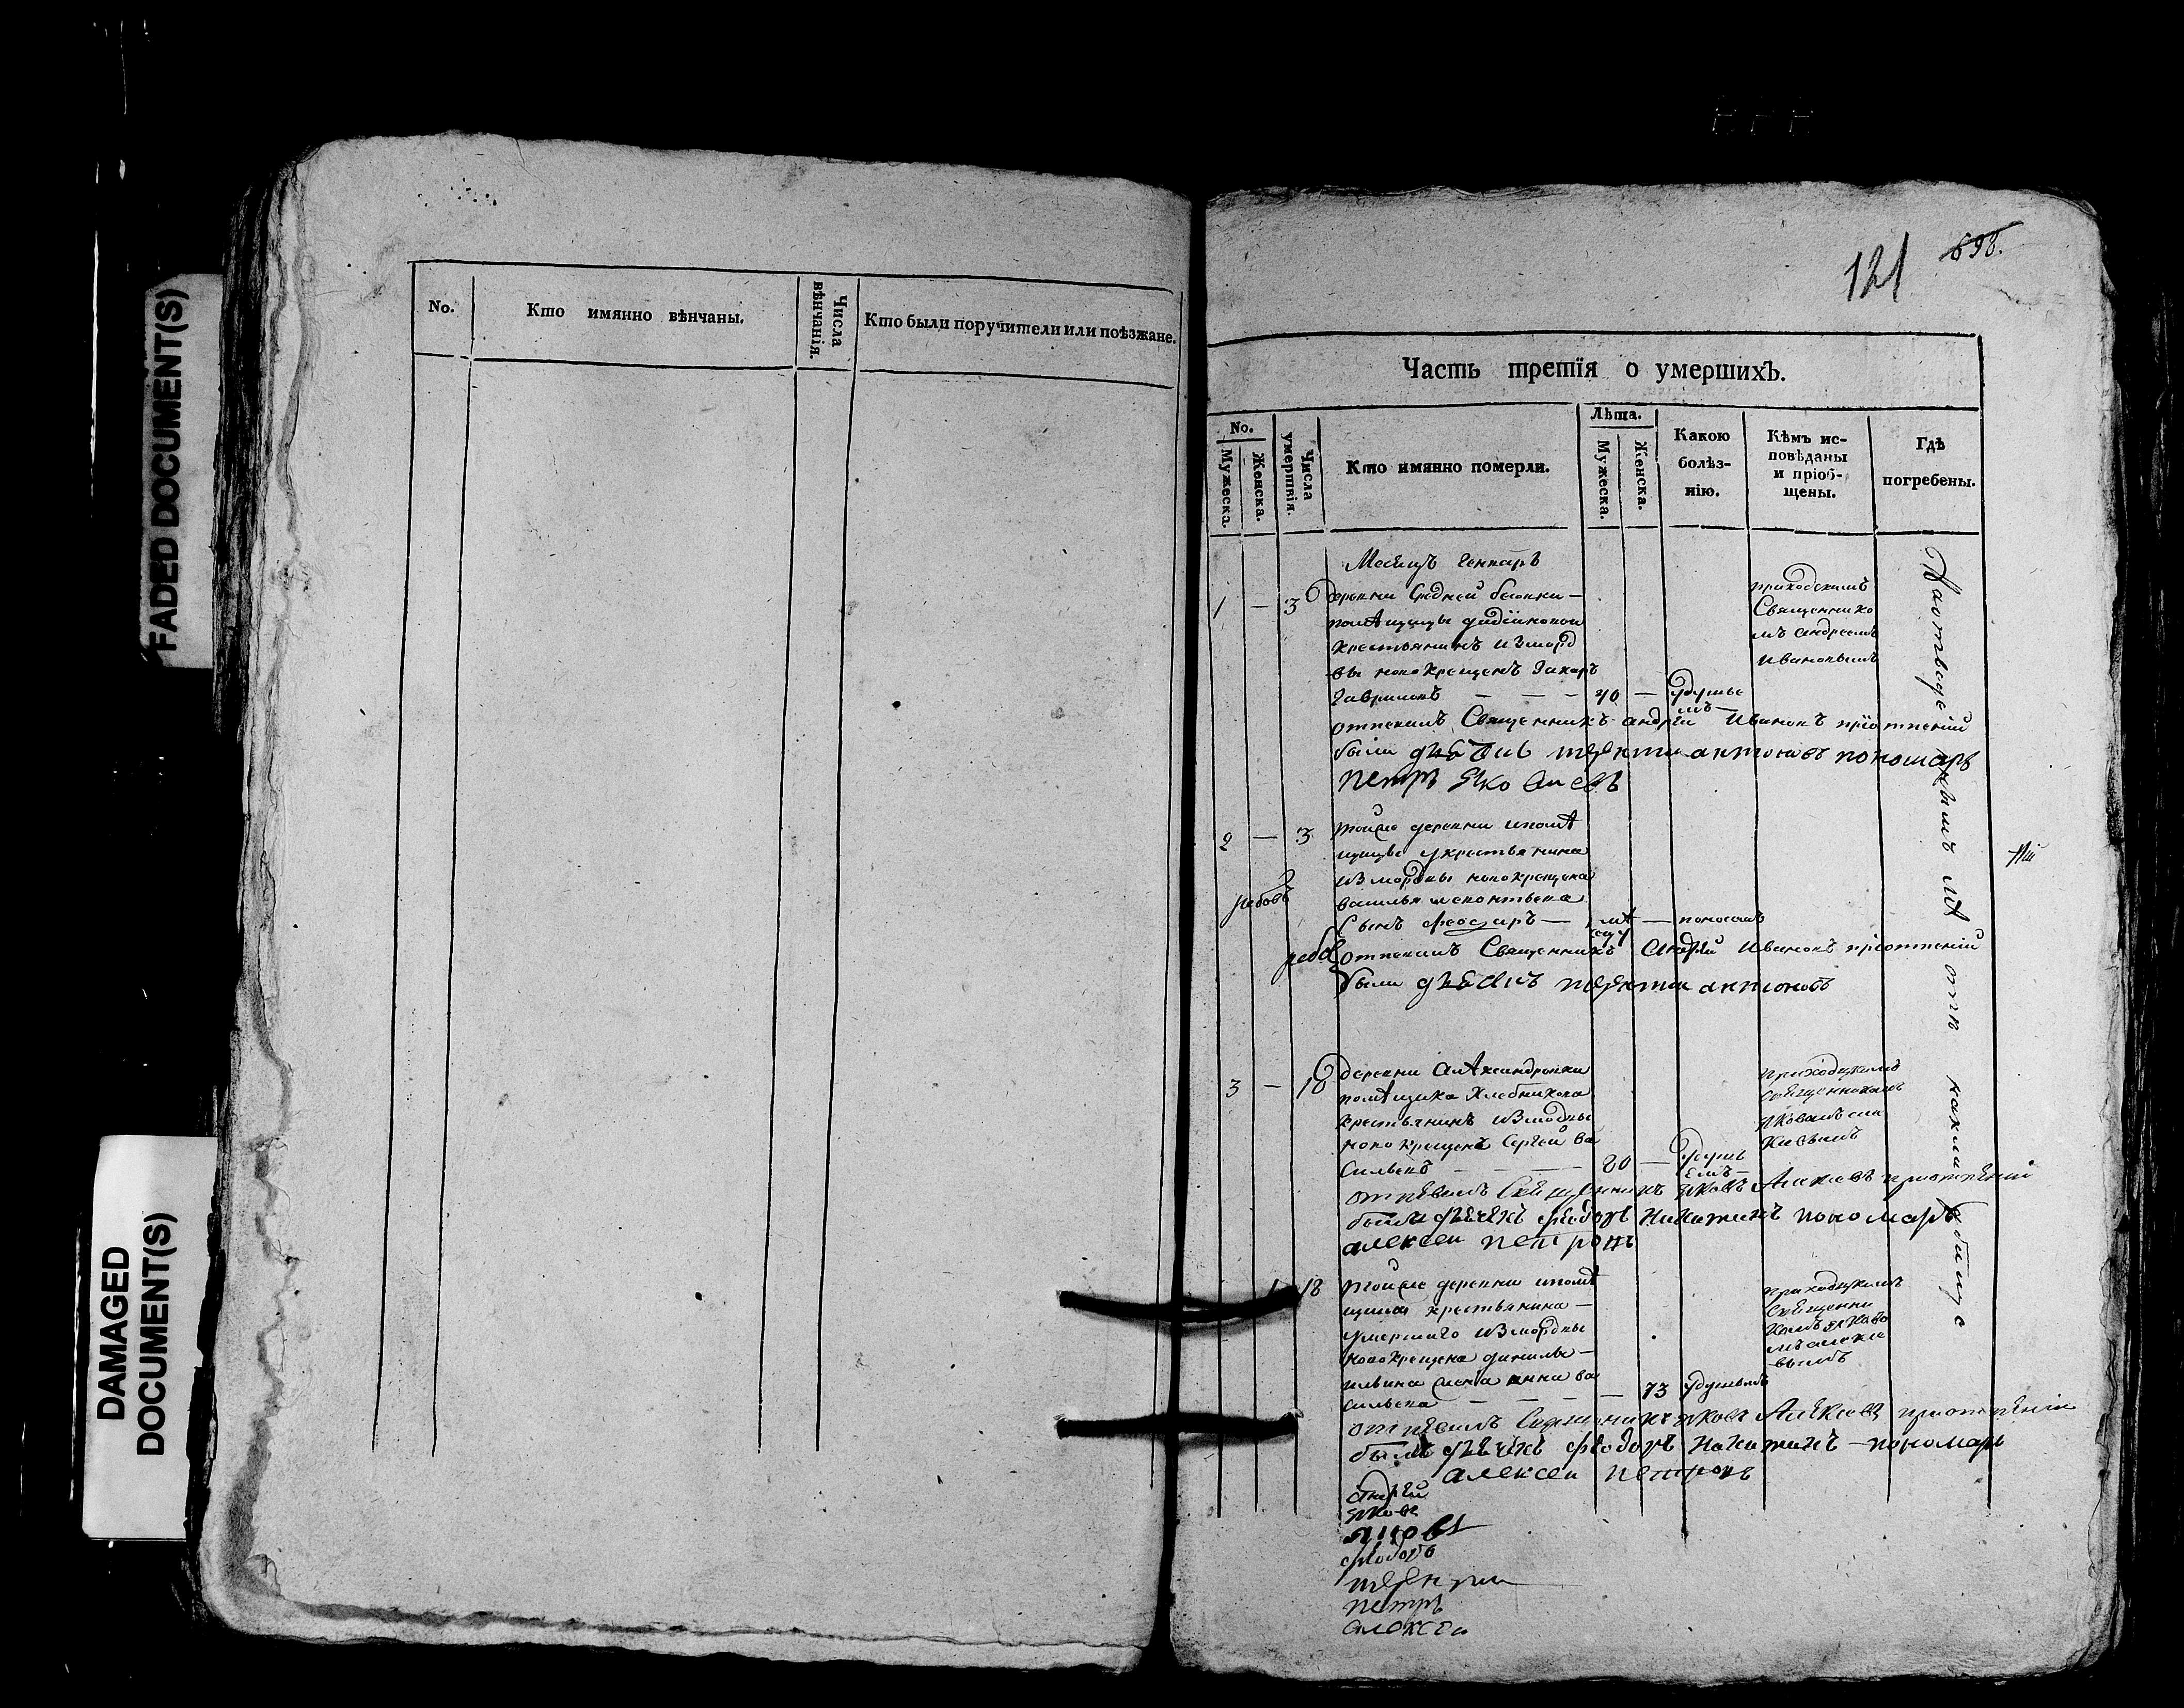 FADED DOCUMENT(S)
DAMAGED
DOCUMENT(S)
No.
Кто имянно вѣнчаны.
Числа
вѣнчанія.
Кто были поручители или поѣзжане.
121 698.
Часть третія о умершихъ.
No.
Мужеска.
Женска.
Числа
умертвія.
Кто имянно померли.
Лѣта.
Мужеска.
Женска.
Какою
болѣз-
нію.
Кѣмъ ис-
повѣданы
и пріоб-
щены.
Гдѣ
погребены.
Месяцъ Генваръ
1 — 3 деревни Средней
помѣщицы
крестьянинъ изъ морд
вы новокрещенъ Захаръ
Гавриловъ — — — 70 — удушье
мъ —
приходскимъ
Священнико
мъ андреемъ
Ивановымъ
отпевалъ Священникъ андрѣй Ивановъ при отпетіи
были дьячикъ терентии антоновъ пономарь
петръ Яковлевъ
2 — 3 тойже деревни ипомѣ
щицы укрестьянина
из мордвы новокрещена
василья леонтьева
Сынъ феодаръ — лѣ — поносомъ
отпевалъ Священникъ Андрѣй Ивановъ при отпетіи
были дьячикъ терентии антоновъ
3 — 18 деревни Алѣксандровки
помѣщика Хлебникова
крестьянинъ измордвы
новокрещенъ Сергеи ва
сильевъ — — — 80 — удушь
емъ —
приходцкимъ
священникомъ
яковомъ але
киевымъ
отпевалъ Священникъ яковъ Алекіевъ приотпетіи
были дьячекъ феодоръ Никитинъ пономарь
алексеи петровъ
1 18 тойже деревни ипомѣ
щика крестьянина —
умершаго измордвы
новокрещена данилы —
ильина жена анна ва
сильева — — — 73 удушьемъ
приходцкимъ
священни
комъ яково
мъ алекіе
вымъ
отпевалъ Священникъ яковъ Алекіевъ приотпетіи
былъ дьячекъ феодоръ Никитинъ — пономарь
алексеи петровъ
андрѣй
яковъ
феодоръ
терентии
петръ
алексеи